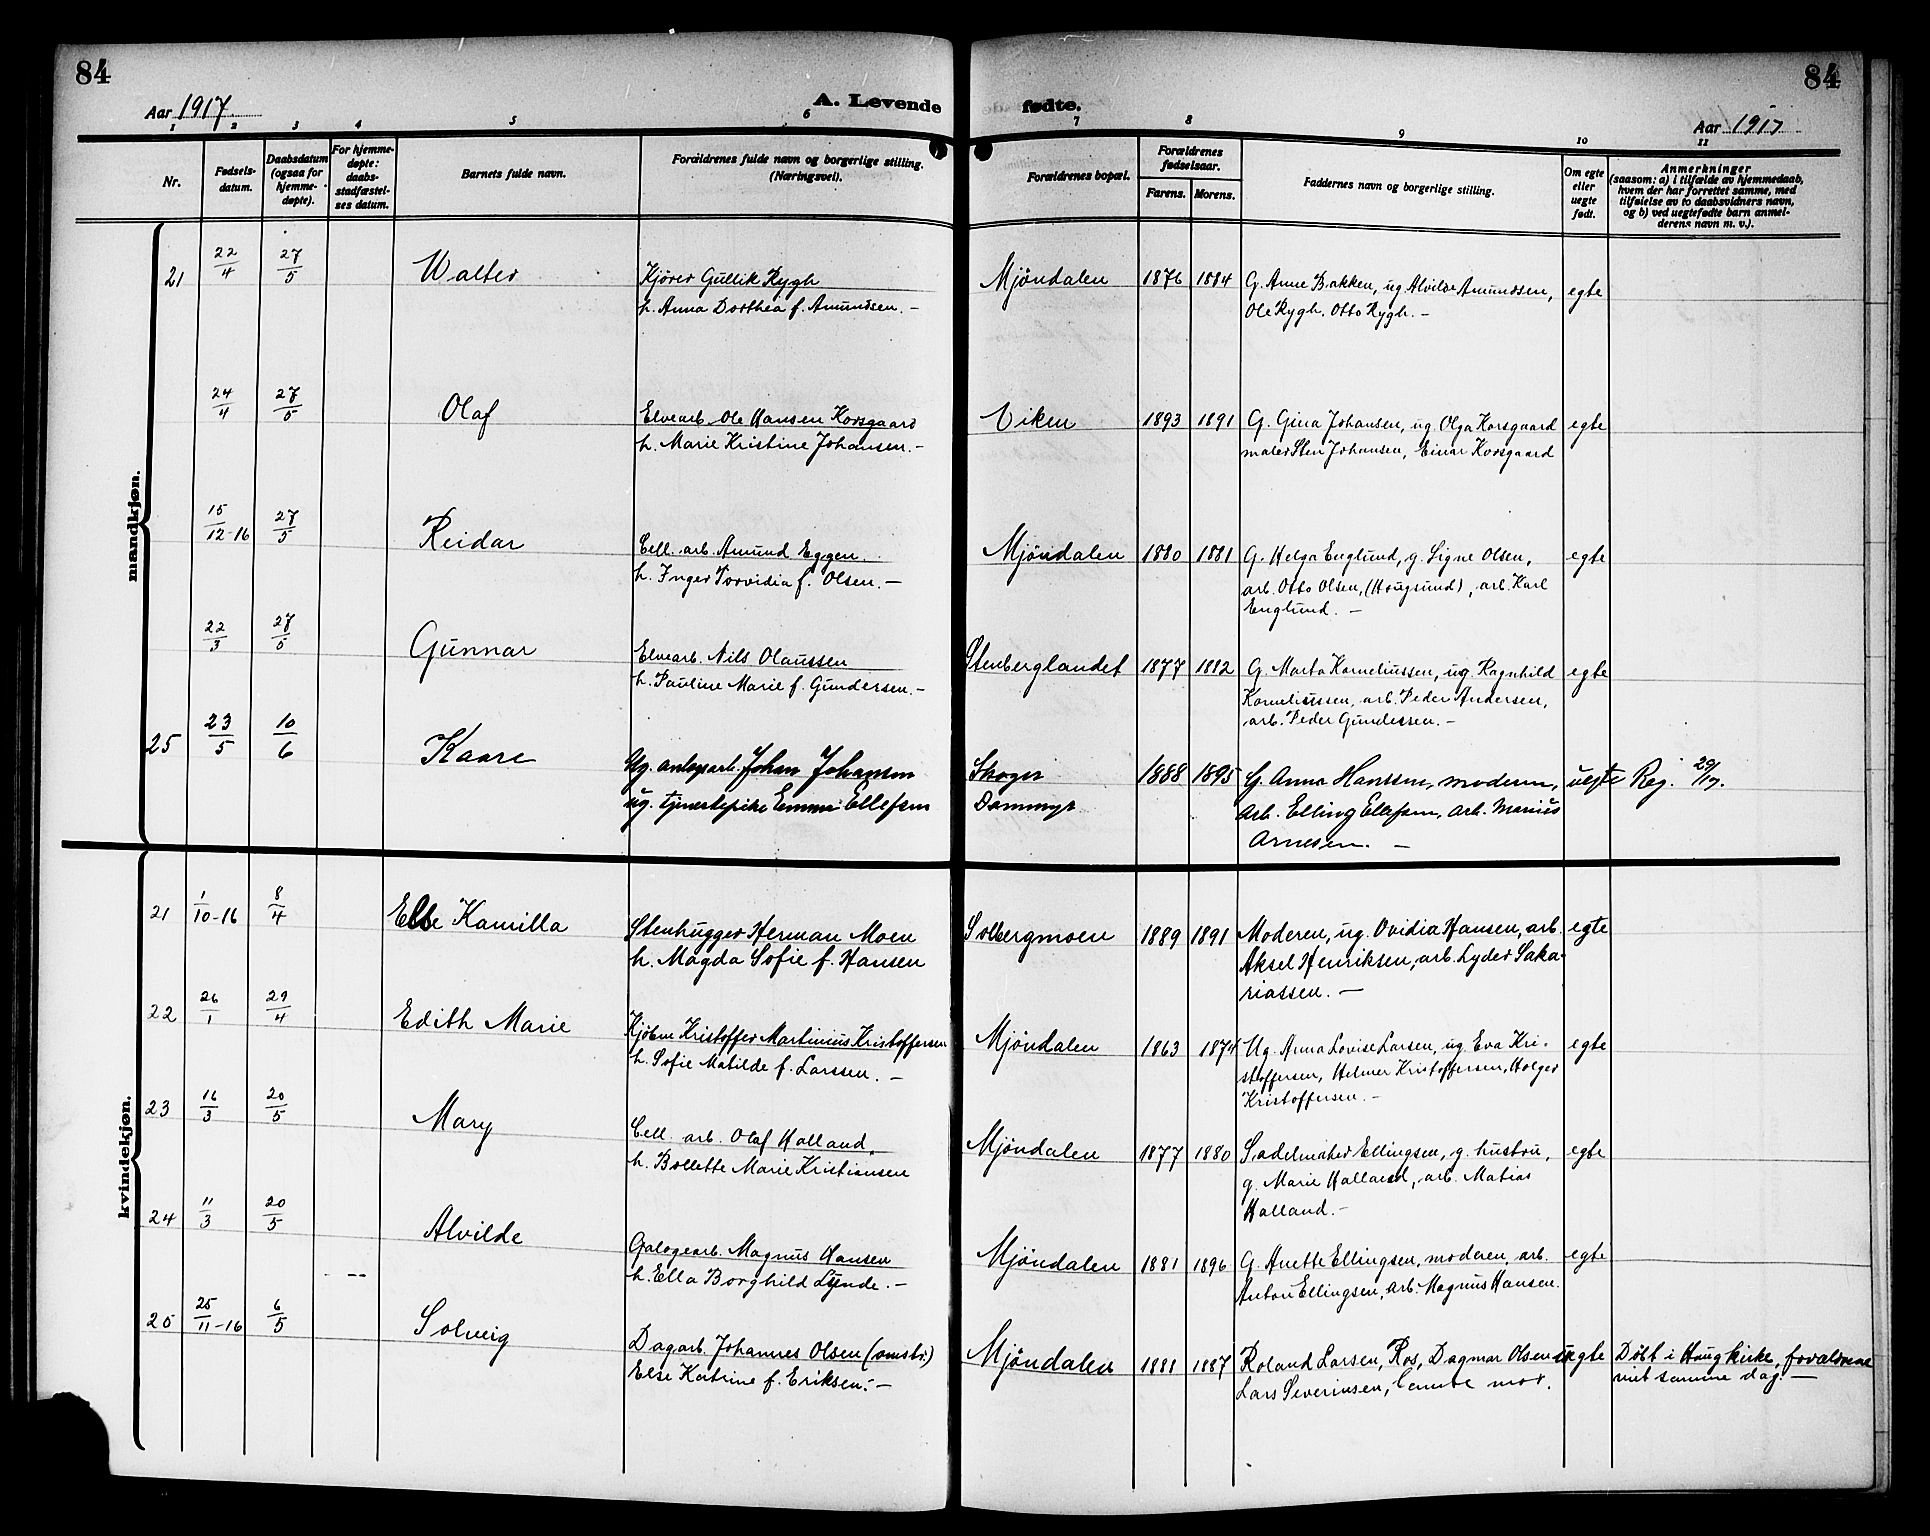 84
84
Aar 1917.
A. Levende fødte.
Aar 1917
1 2 3 4 5 6 7 8 9 10 11
Nr.
Fødsels-
datum.
Daabsdatum
(ogsaa for
hjemme-
døpte).
For hjemme-
døpte:
daabs-
stadfæstel-
ses datum.
Barnets fulde navn.
Forældrenes fulde navn og borgerlige stilling.
(Næringsvei).
Forældrenes bopæl.
Forældrenes
fødselsaar.
Farens. Morens.
Faddernes navn og borgerlige stilling.
Om egte
eller
uegte
født.
Anmerkninger
(saasom: a) i tilfælde av hjemmedaab,
hvem der har forrettet samme, med
tilføielse av to daabsvidners navn,
og b) ved uegtefødte barn anmel-
derens navn m. v.).
mandkjøn.
21 22/4 27/5 Walter
Kjører Gullik Rygh
h. Anna Dorthea f. Amundsen. –
Mjøndalen 1876 1884
G. Anne Bakken, ug Alvilde Amundsen,
Ole Rygh. Otto Rygh. –
egte
24/4 27/5 Olaf
Elvearb. Ole Hansen Korsgaard
h. Marie Kristine Johansen. –
Viken 1893 1891
G. Gina Johansen, ug. Olga Korsgaard
maler Sten Johansen, Einar Korsgaard
egte
15/12-16 27/5 Reidar
Cell. arb. Amund Eggen.
h. Inger Torvidia f. Olsen. –
Mjøndalen 1880 1881
G. Helga Englund, g. Signe Olsen,
arb. Otto Olsen, (Hougsund), arb. Karl
Englund. –
egte
22/3 27/5 Gunnar
Elvearb. Nils Olaussen
h. Pauline Marie f. Gundersen. –
Stenberglandet 1877 1882
G. Marta Korneliussen, ug. Ragnhild
Korneliussen, arb. Peder Andersen,
arb. Peder Gundessen. –
egte
25 23/5 10/6 Kaare
Ug. anlægsarb. Johan Johansen
ug. tjenestepike Emma Ellefsen
Skoger
Dammyr
1888 1895
G. Anna Hanssen, moderen,
arb. Elling Ellefsen, arb. Marius
Arnesen. –
uegte
Reg. 29/17.
kvindekjøn.
21 1/10-16 8/4 Else Kamilla
Stenhugger Herman Moen
h. Magda Sofie f. Hansen
Solbergmoen 1889 1891
Moderen, ug. Ovidia Hansen, arb.
Aksel Henriksen, arb. Lyder Saka-
riassen. –
egte
22 26/1 29/4 Edith Marie
Kjøbm Kristoffer Martinius Kristoffersen
h. Sofie Matilde f. Larssen. –
Mjøndalen 1863 1874
Ug. Anna Lovise Larsen, ug. Eva Kri-
stoffersen, Helmer Kristoffersen, Holger
Kristoffersen. –
egte
23 16/3 20/5 Mary
Cell. arb. Olaf Halland,
h. Bollette Marie Kristiansen
Mjøndalen 1877 1880
Sadelmaker Ellingsen, g. hustru,
g. Marie Halland, arb. Matias
Halland. –
egte
24 11/3 20/5 Alvilde
Galogearb. Magnus Hansen
h. Ella Borghild Lynde. –
Mjøndalen 1881 1896
G. Anette Ellingsen, moderen, arb.
Anton Ellingsen, arb. Magnus Hansen.
egte
25 25/11-16 6/5 Solveig
Dagarb. Johannes Olsen (omstr.)
Else Katrine f. Eriksen. –
Mjøndalen 1881 1887
Roland Larsen, Ros, Dagmar Olsen
Lars Severinsen, mor.
egte
Døbt i Haug kirke, forældrene
viet samme dag. –